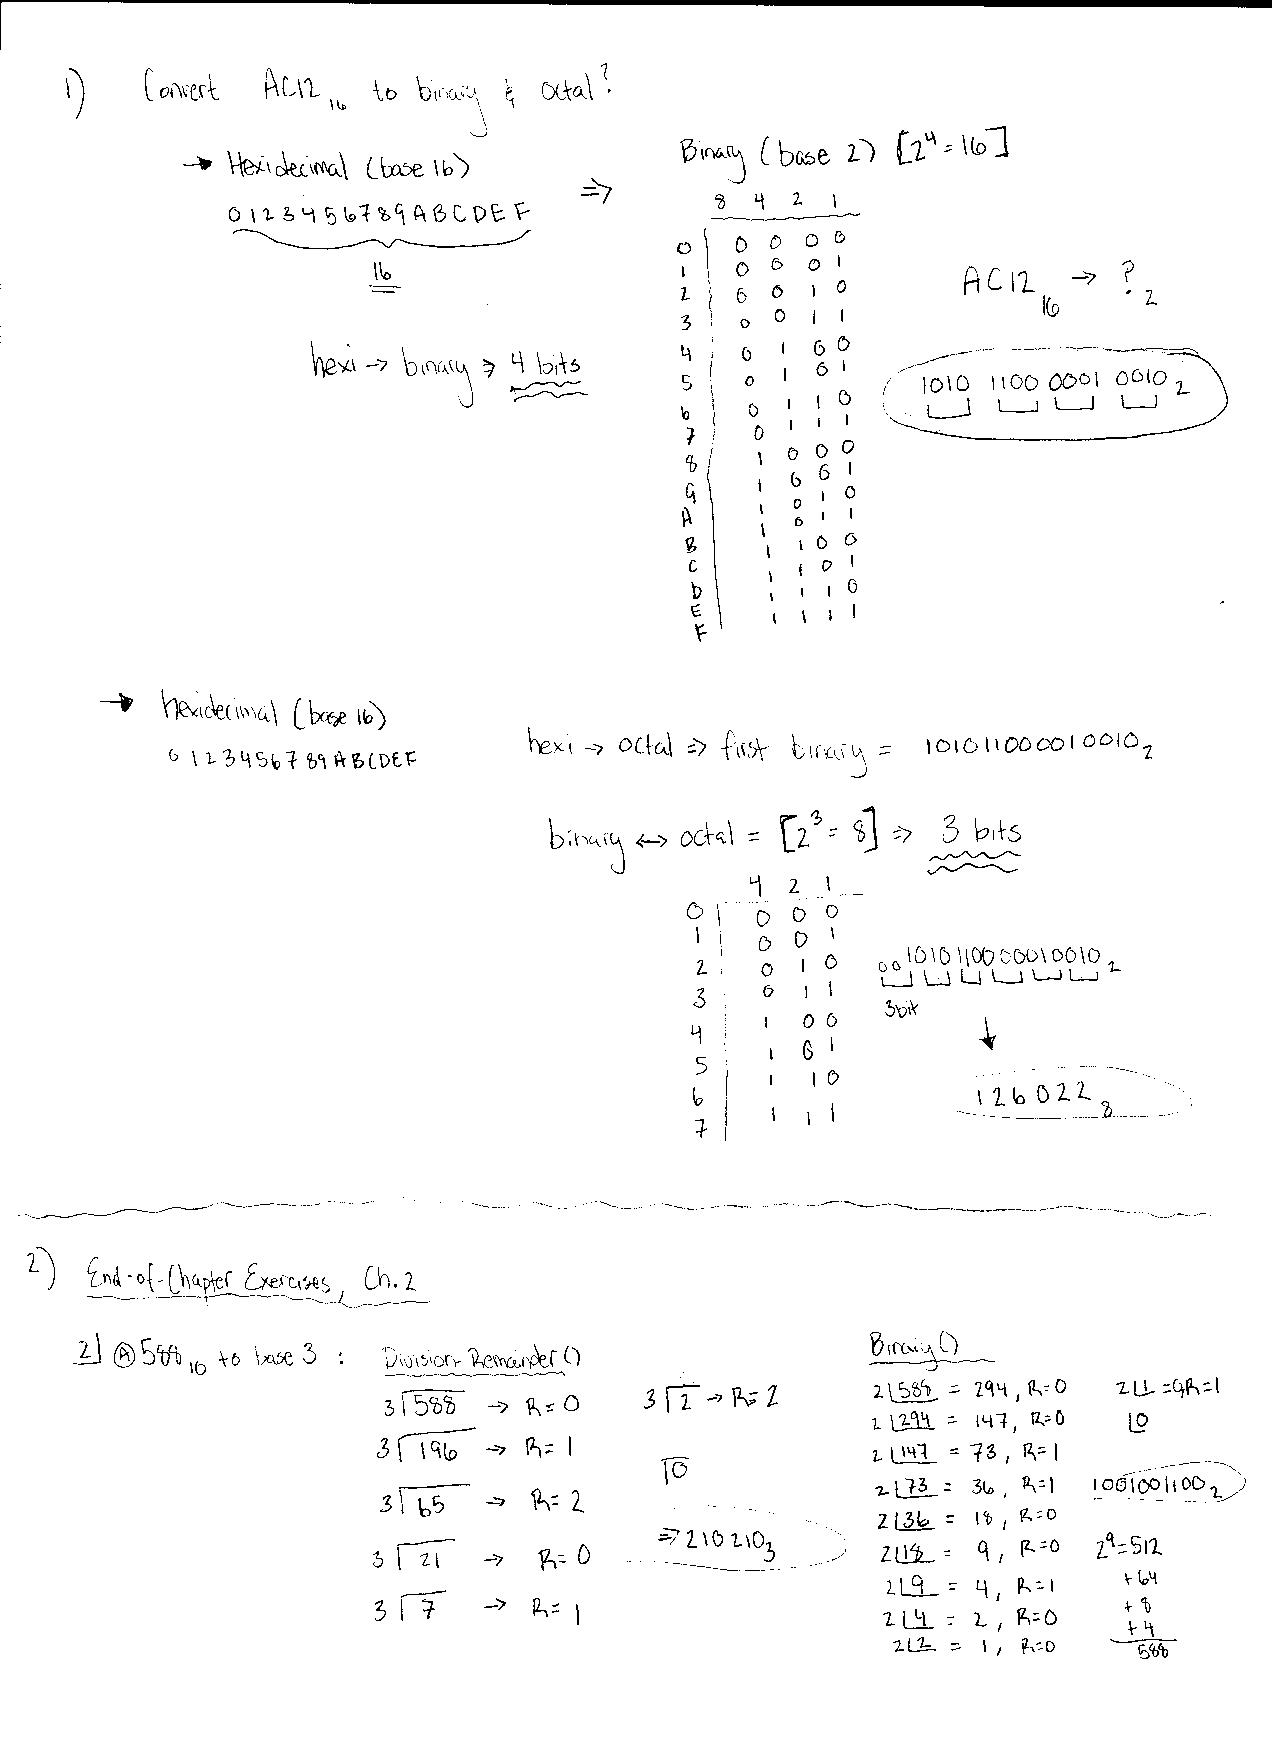 1) Convert AC12₁₆ to binary & octal?
→ Hexidecimal (base 16) ⇒ Binary (base 2) [2⁴=16]
0 1 2 3 4 5 6 7 8 9 A B C D E F
16
hexi → binary ⇒ 4 bits
8 4 2 1
0 | 0 0 0 0
1 | 0 0 0 1
2 | 0 0 1 0
3 | 0 0 1 1
4 | 0 1 0 0
5 | 0 1 0 1
6 | 0 1 1 0
7 | 0 1 1 1
8 | 1 0 0 0
9 | 1 0 0 1
A | 1 0 1 0
B | 1 0 1 1
C | 1 1 0 0
D | 1 1 0 1
E | 1 1 1 0
F | 1 1 1 1
AC12₁₆ → ?₂
1010 1100 0001 0010₂
→ hexidecimal (base 16)
0 1 2 3 4 5 6 7 8 9 A B C D E F
hexi → octal ⇒ first binary = 1010110000010010₂
binary ↔ octal = [2³ = 8] ⇒ 3 bits
4 2 1
0 | 0 0 0
1 | 0 0 1
2 | 0 1 0
3 | 0 1 1
4 | 1 0 0
5 | 1 0 1
6 | 1 1 0
7 | 1 1 1
001010110000010010₂
3bit
↓
126022₈
2) End-of-Chapter Exercises, Ch.2
2] Ⓐ 588₁₀ to base 3 : Division-Remainder()
3⟌588 → R=0
3⟌196 → R=1
3⟌65 → R=2
3⟌21 → R=0
3⟌7 → R=1
3⟌2 → R=2
0
⇒ 210210₃
Binary()
2⌊588 = 294, R=0
2⌊294 = 147, R=0
2⌊147 = 73, R=1
2⌊73 = 36, R=1
2⌊36 = 18, R=0
2⌊18 = 9, R=0
2⌊9 = 4, R=1
2⌊4 = 2, R=0
2⌊2 = 1, R=0
2⌊1 = 0, R=1
⌊0
1001001100₂
2⁹=512
+64
+8
+4
588